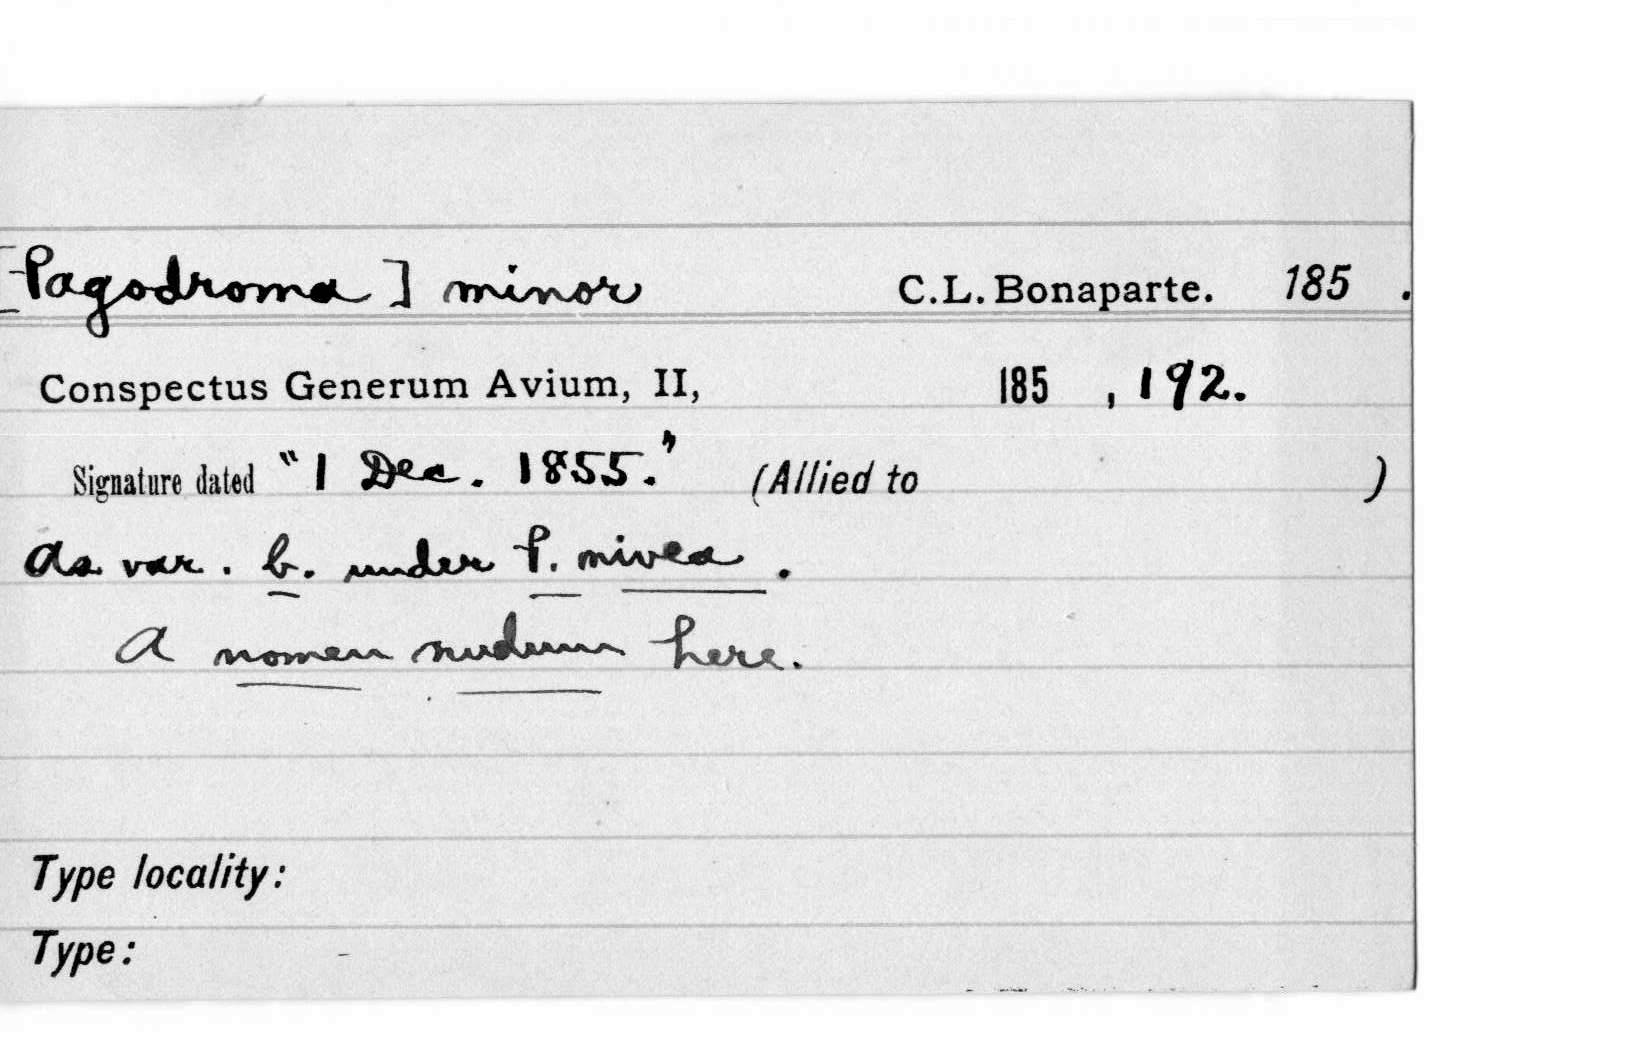 [Pagodroma] minor C.L. Bonaparte. 185 .
Conspectus Generum Avium, II, 185 , 192.
Signature dated "1 Dec. 1855." (Allied to )
As var. b. under P. nivea.
A nomen nudum here.
Type locality:
Type: